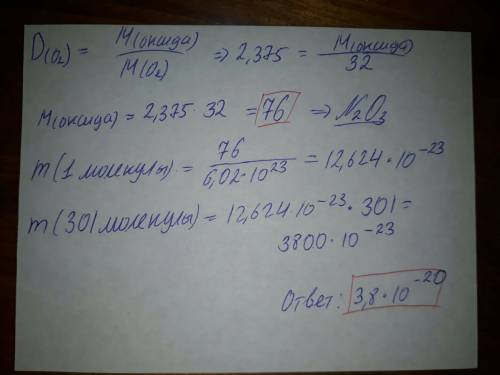 D(O₂) = M(оксида) / M(O₂) ⇒ 2,375 = M(оксида) / 32
M(оксида) = 2,375 · 32 = 76 ⇒ N₂O₃
m(1 молекулы) = 76 / 6,02·10²³ = 12,624·10⁻²³
m(301 молекулы) = 12,624·10⁻²³·301 =
3800·10⁻²³
Ответ: 3,8·10⁻²⁰